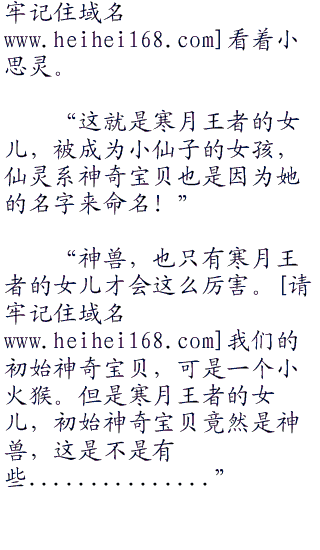 牢记住域名
www.heihei168.com]看着小
思灵。
“这就是寒月王者的女
儿，被成为小仙子的女孩，
仙灵系神奇宝贝也是因为她
的名字来命名！”
“神兽，也只有寒月王
者的女儿才会这么厉害。[请
牢记住域名
www.heihei168.com]我们的
初始神奇宝贝，可是一个小
火猴。但是寒月王者的女
儿，初始神奇宝贝竟然是神
兽，这是不是有
些...............”